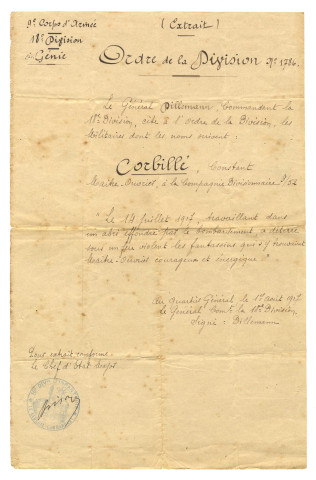 9e Corps d'Armée
18e Division
Génie
(Extrait)
Ordre de la Division No 1786
Le Général Commandant la
Division, cite à l'ordre de la Division, les
Militaires dont les noms suivent :
Corbillé, Constant
Maître-Ouvrier, à la Compagnie Divisionnaire 9/52
" Le 14 juillet 1917, travaillant dans
un abri effondré par le bombardement, a délivré
sous un feu violent les fantassins qui s'y trouvaient
Maître-Ouvrier courageux et énergique "
Au Quartier Général le août 1917
le Général Comdt la Division
Signé :
Pour extrait conforme
Le Chef d'Etat Major